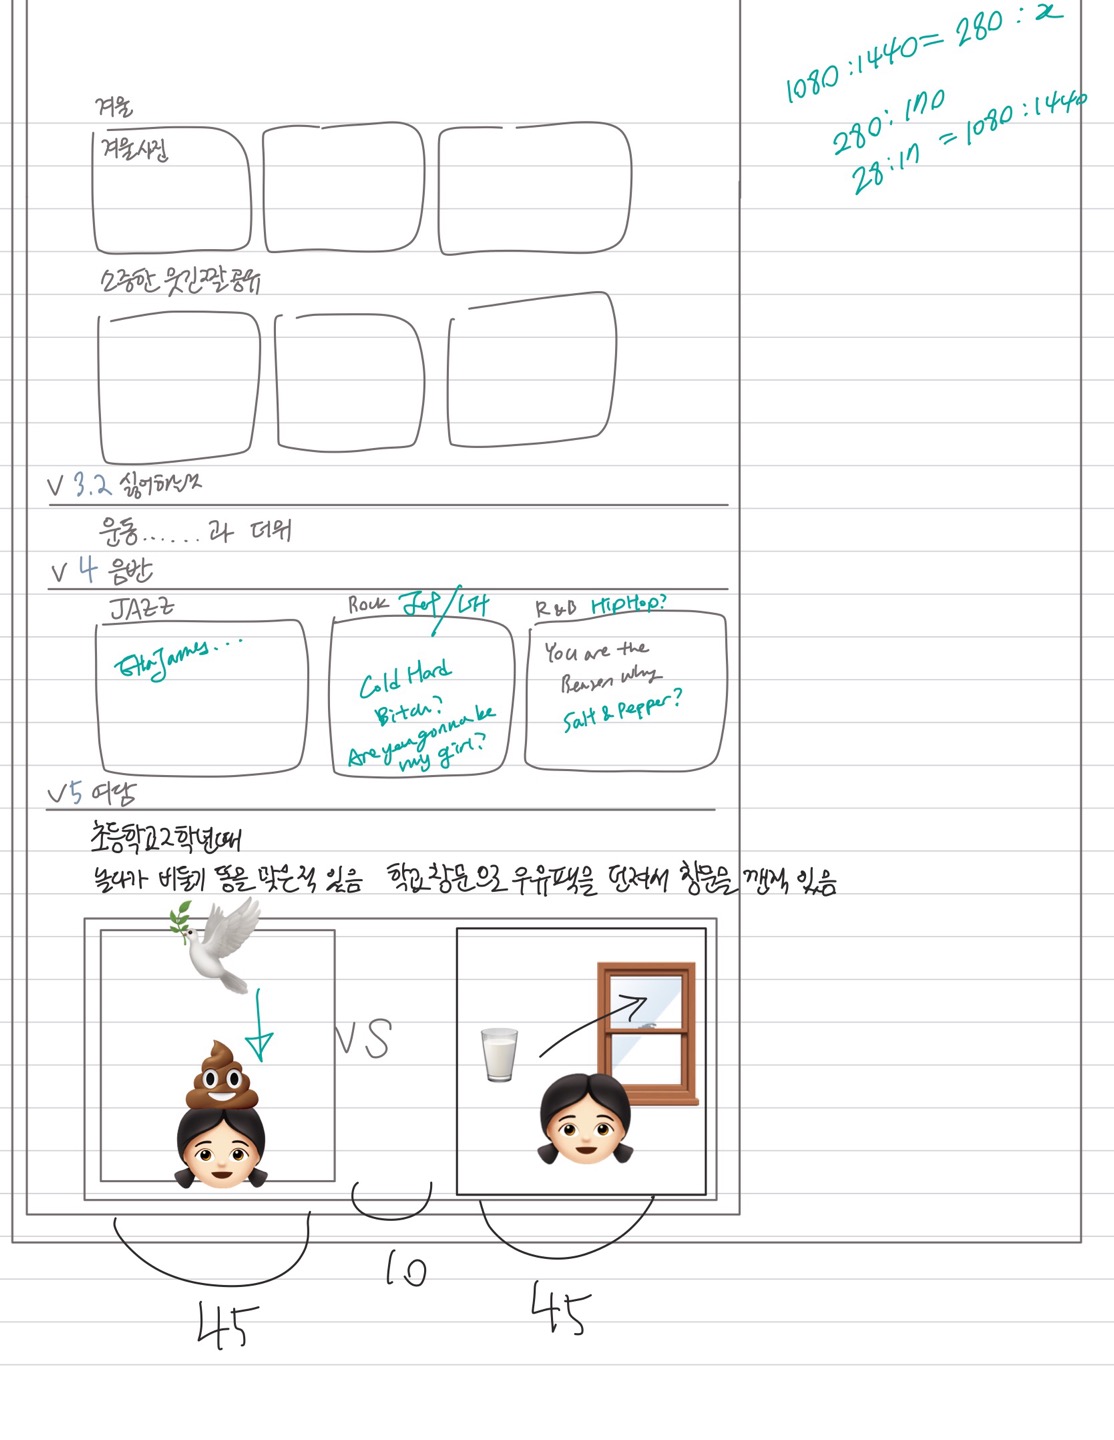 1080:1440=280:x
280:170
28:17 =1080:1440
겨울
겨울사진
소중한 웃긴짤공유
V 3.2 싫어하는것
운동......과 더위
V 4 음반
JAZZ
Etta James...
Rock Jet/
Cold Hard
Bitch?
Are you gonna be
my girl?
R&B HipHop?
You are the
Reason why
Salt & Pepper?
V5 여담
초등학교2학년때
놀다가 비둘기 똥을 맞은적 있음 학교창문으로 우유팩을 던져서 창문을 깬적 있음
VS
45
10
45